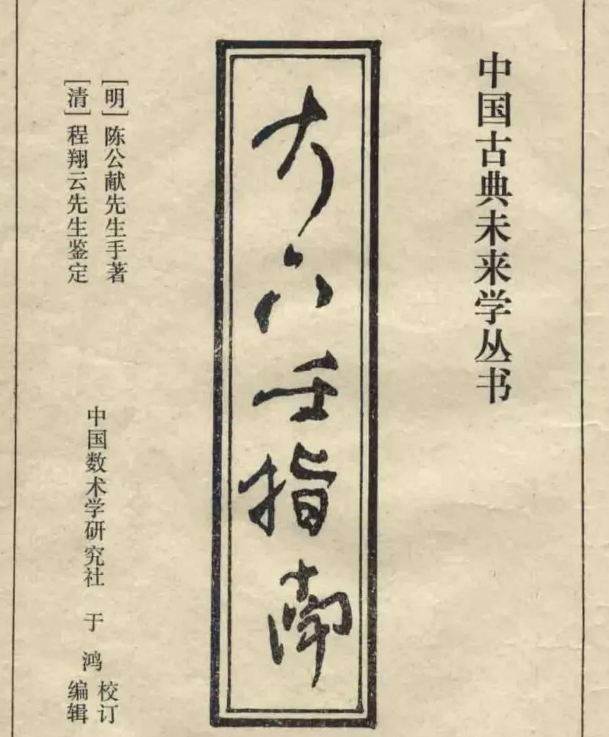 中国古典未来学丛书
大六壬指南
[明]陈公献先生手著
[清]程翔云先生鉴定
中国数术学研究社 于 鸿 校订
编辑